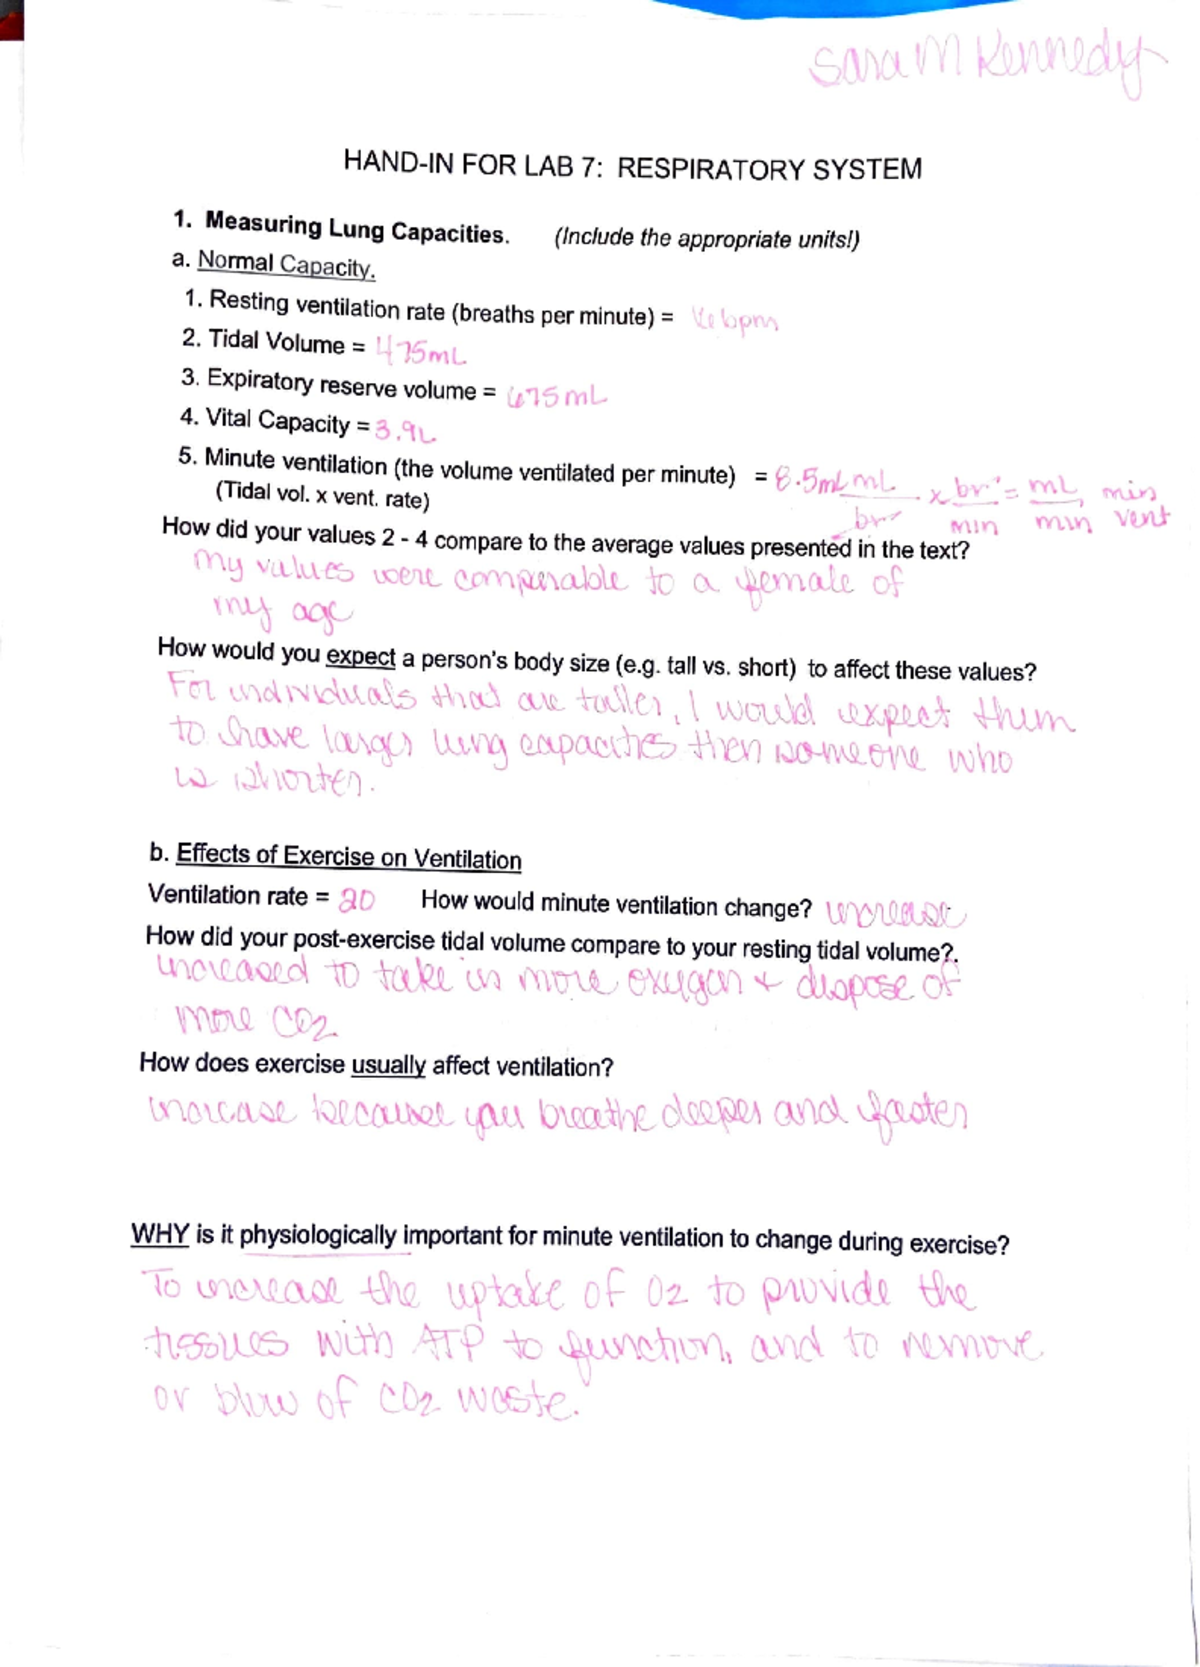 Sara M Kennedy
HAND-IN FOR LAB 7: RESPIRATORY SYSTEM
1. Measuring Lung Capacities. (Include the appropriate units!)
a. Normal Capacity.
1. Resting ventilation rate (breaths per minute) = bpm
2. Tidal Volume = 475mL
3. Expiratory reserve volume = 675mL
4. Vital Capacity = 3.9L
5. Minute ventilation (the volume ventilated per minute) = 8.5mL mL/br x br/min = mL/min, min vent
(Tidal vol. x vent. rate)
How did your values 2 - 4 compare to the average values presented in the text?
My values were comperable to a female of
my age
How would you expect a person's body size (e.g. tall vs. short) to affect these values?
For individuals that are taller, I would expect them
to have larger lung capacities then someone who
is shorter.
b. Effects of Exercise on Ventilation
Ventilation rate = 20 How would minute ventilation change? increase
How did your post-exercise tidal volume compare to your resting tidal volume?.
increased to take in more oxygen + dispose of
more CO2.
How does exercise usually affect ventilation?
increase because you breathe deeper and faster
WHY is it physiologically important for minute ventilation to change during exercise?
To increase the uptake of O2 to provide the
tissues with ATP to function, and to remove
or blow of CO2 waste.